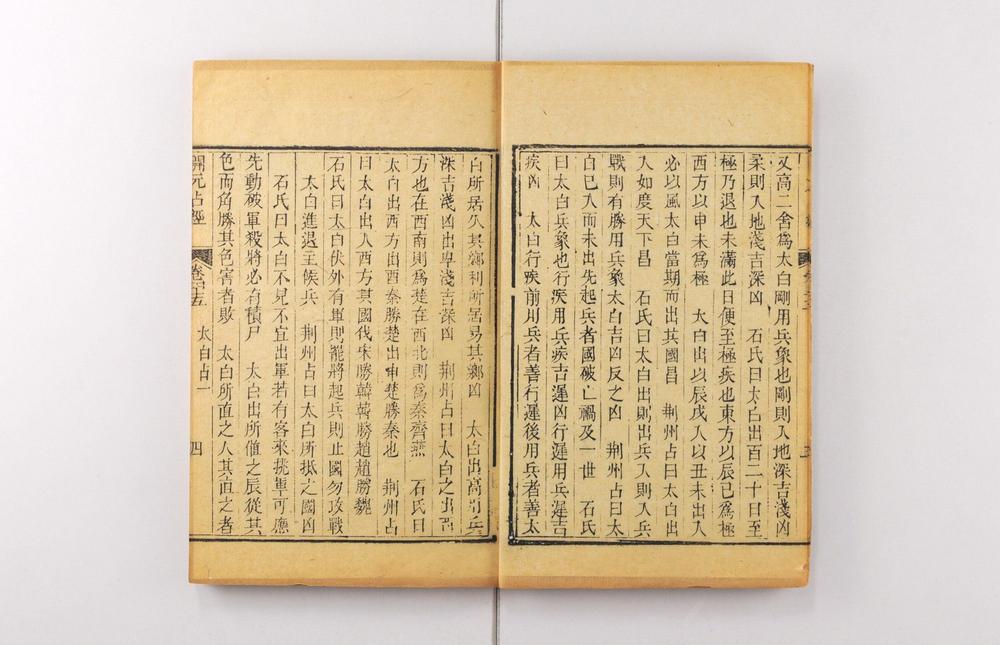 又高二舍爲太白剛用兵象也剛則入地深吉淺凶
柔則入地淺吉深凶　石氏曰太白出百二十日至
極乃退也未滿此日便至極疾也東方以辰巳爲極
西方以申未爲極　太白出以辰戌入以丑未出入
必以風太白當期而出其國昌　荆州占曰太白出
入如度天下昌　石氏曰太白出則出兵入則入兵
戰則有勝用兵象太白吉凶反之凶　荆州占曰太
白已入而未出先起兵者國破亡禍及一世　石氏
曰太白兵象也行疾用兵疾吉遲凶行遲用兵遲吉
疾凶　太白行疾前用兵者善行遲後用兵者善太
白所居久其鄉利所居易其鄉凶　太白出高用兵
深吉淺凶出卑淺吉深凶　荆州占曰太白之出西
方也在西南則爲楚在西北則爲秦齊燕　石氏曰
太白出西方出酉秦勝楚出申楚勝秦也　荆州占
曰太白出入西方其國伐宋勝韓韓勝趙趙勝魏
石氏曰太白伏外有軍則罷將起兵則止國勿攻戰
太白進退主候兵　荆州占曰太白所抵之國凶
石氏曰太白不見不宜出軍若有客來挑軍可應
先動破軍殺將必有積尸　太白出所值之辰從其
色而角勝其色害者敗　太白所直之人其直之者
開元占經　卷四十五　太白占一　四